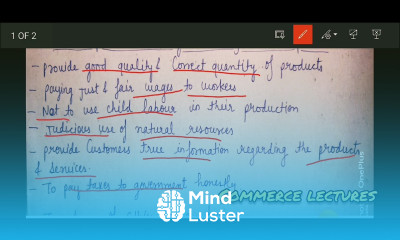 1 OF 2
- provide good quality & correct quantity of products
- paying just & fair wages to workers
- Not to use child labour in their production
- Judicious use of natural resources
- provide customers true information regarding the products
& services.
- To pay taxes to government honestly
COMMERCE LECTURES
Mind
Luster
OnePlus